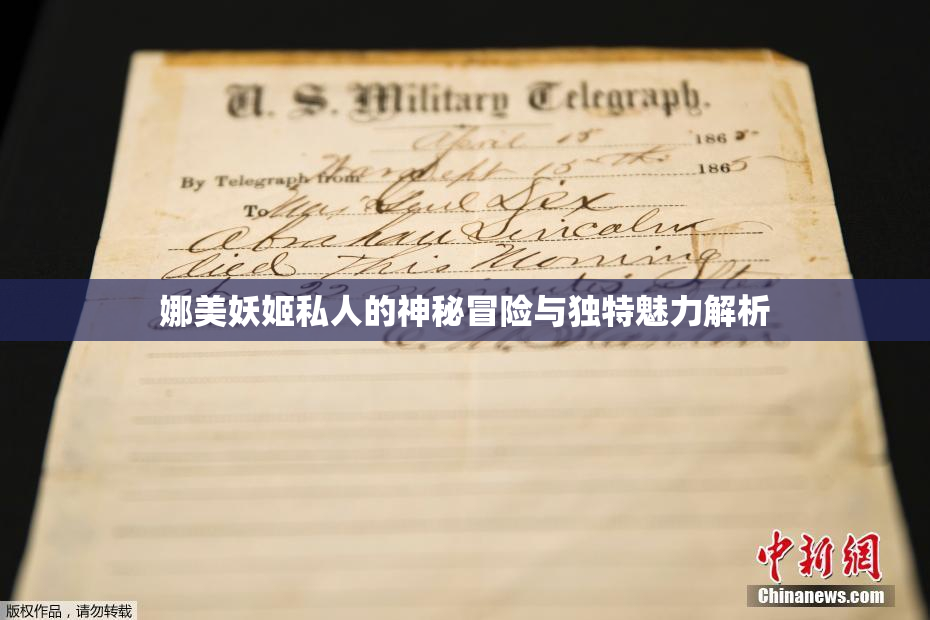 U. S. Military Telegraph.
April 15 1865
By Telegraph from Wash Sept 15th 1865
To Maj Genl Dix
Abraham Lincoln
died This Morning
at 22 minutes after
娜美妖姬私人的神秘冒险与独特魅力解析
E. M. Stanton
中新网
Chinanews.com
版权作品，请勿转载